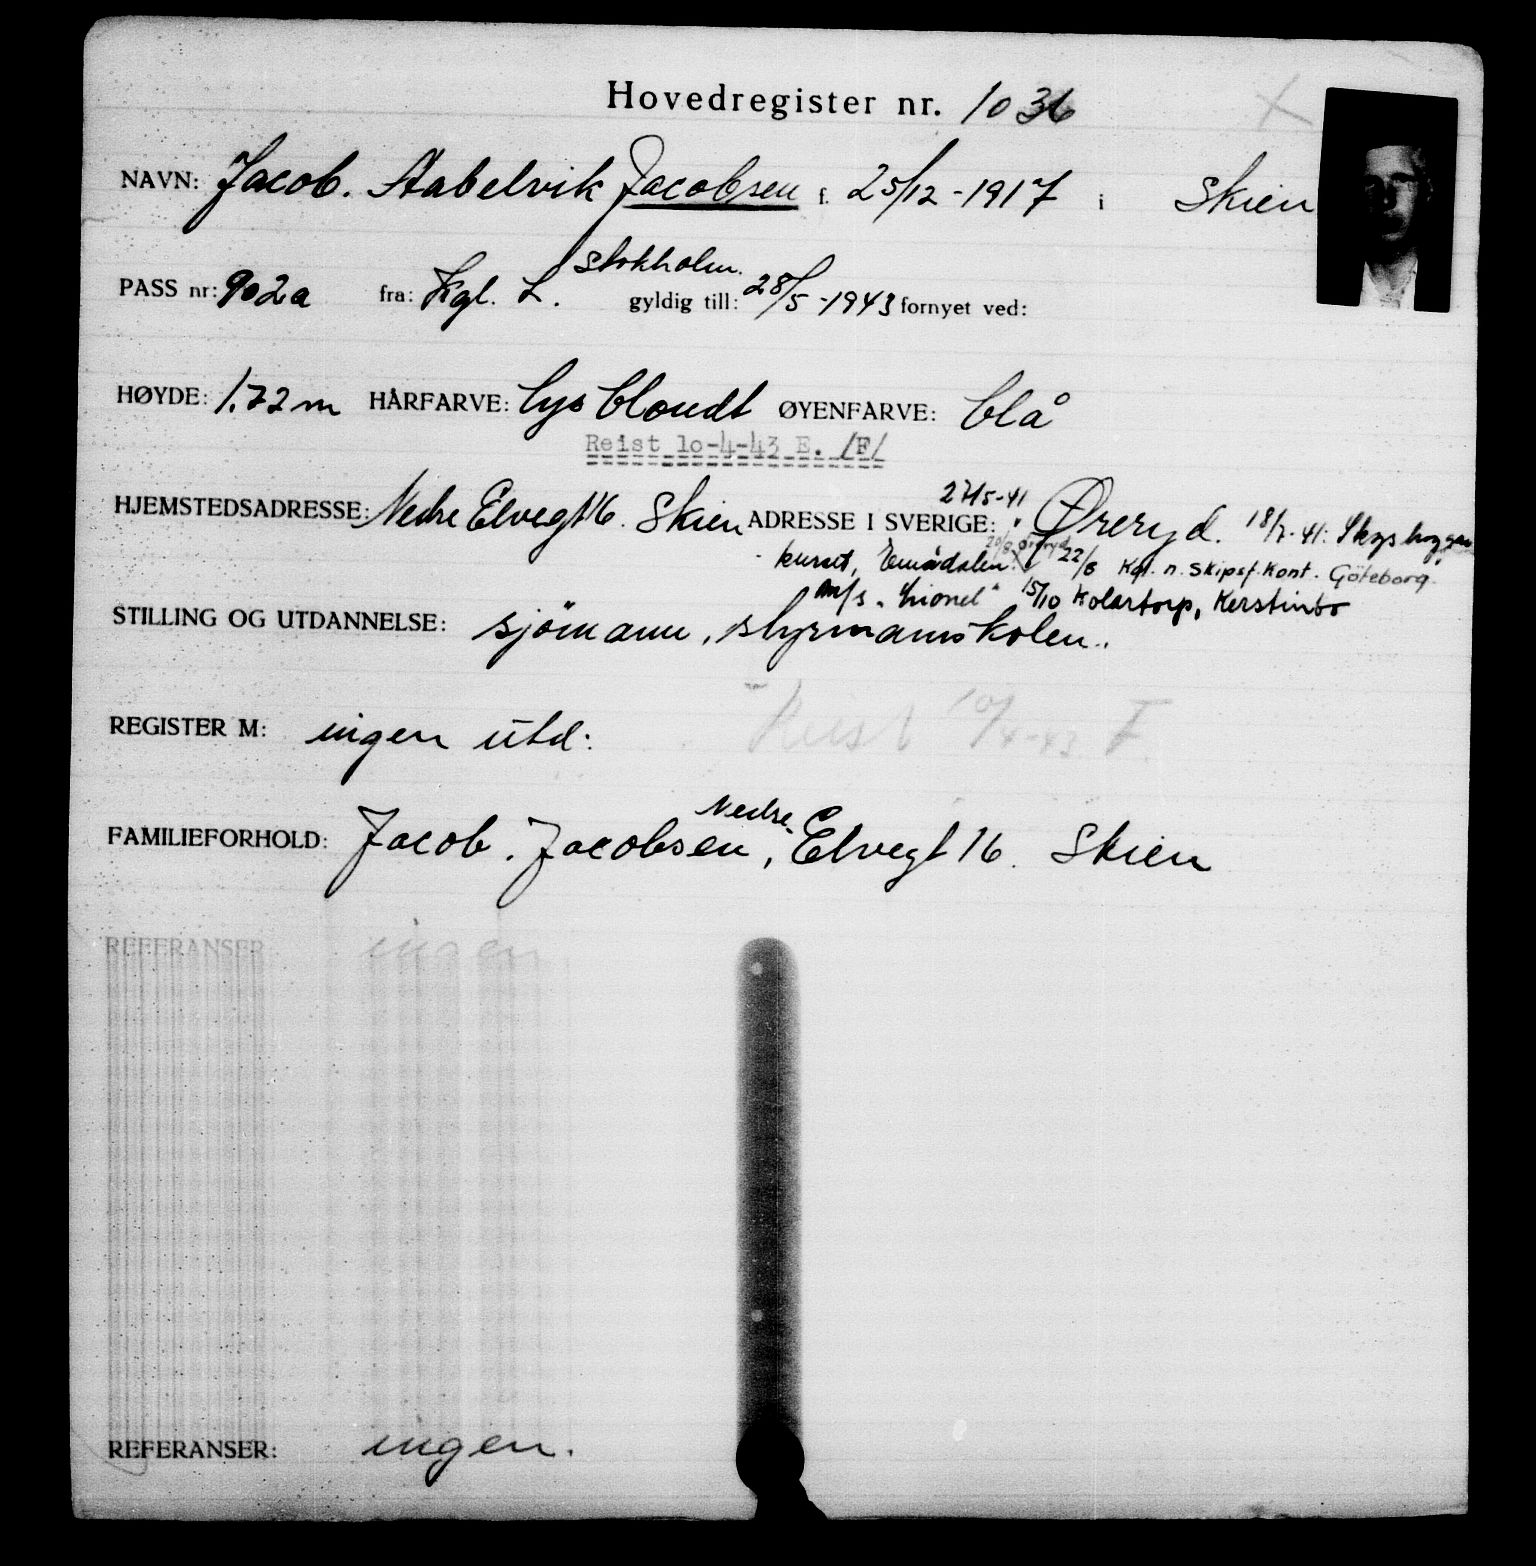 Hovedregister nr. 1036
NAVN: Jacob. Aabelvik Jacobsen f. 25/12-1917 i Skien
PASS nr: 902a fra: Kgl. L. Stokholm. gyldig till: 28/5-1943 fornyet ved:
HØYDE: 1.72 m HÅRFARVE: lys blondt ØYENFARVE: blå
Reist 10-4-43 E. /F/
HJEMSTEDSADRESSE: Nedre Elvegt 16. Skien ADRESSE I SVERIGE: 27/5-41 Øreryd. 18/7-41: Skogshygge
kurset, 20/8 Øreryd 22/8 Kgl. n. Skipsf. Kont. Göteborg.
M/s "Lionel" 15/10 Kolartorp, Kerstinbo
STILLING OG UTDANNELSE: sjömann, styrmannskolen.
REGISTER M: ingen utd:
Reist 10/4-43 F
FAMILIEFORHOLD: Jacob. Jacobsen, Nedre Elvegt 16. Skien
REFERANSER: ingen
REFERANSER: ingen.